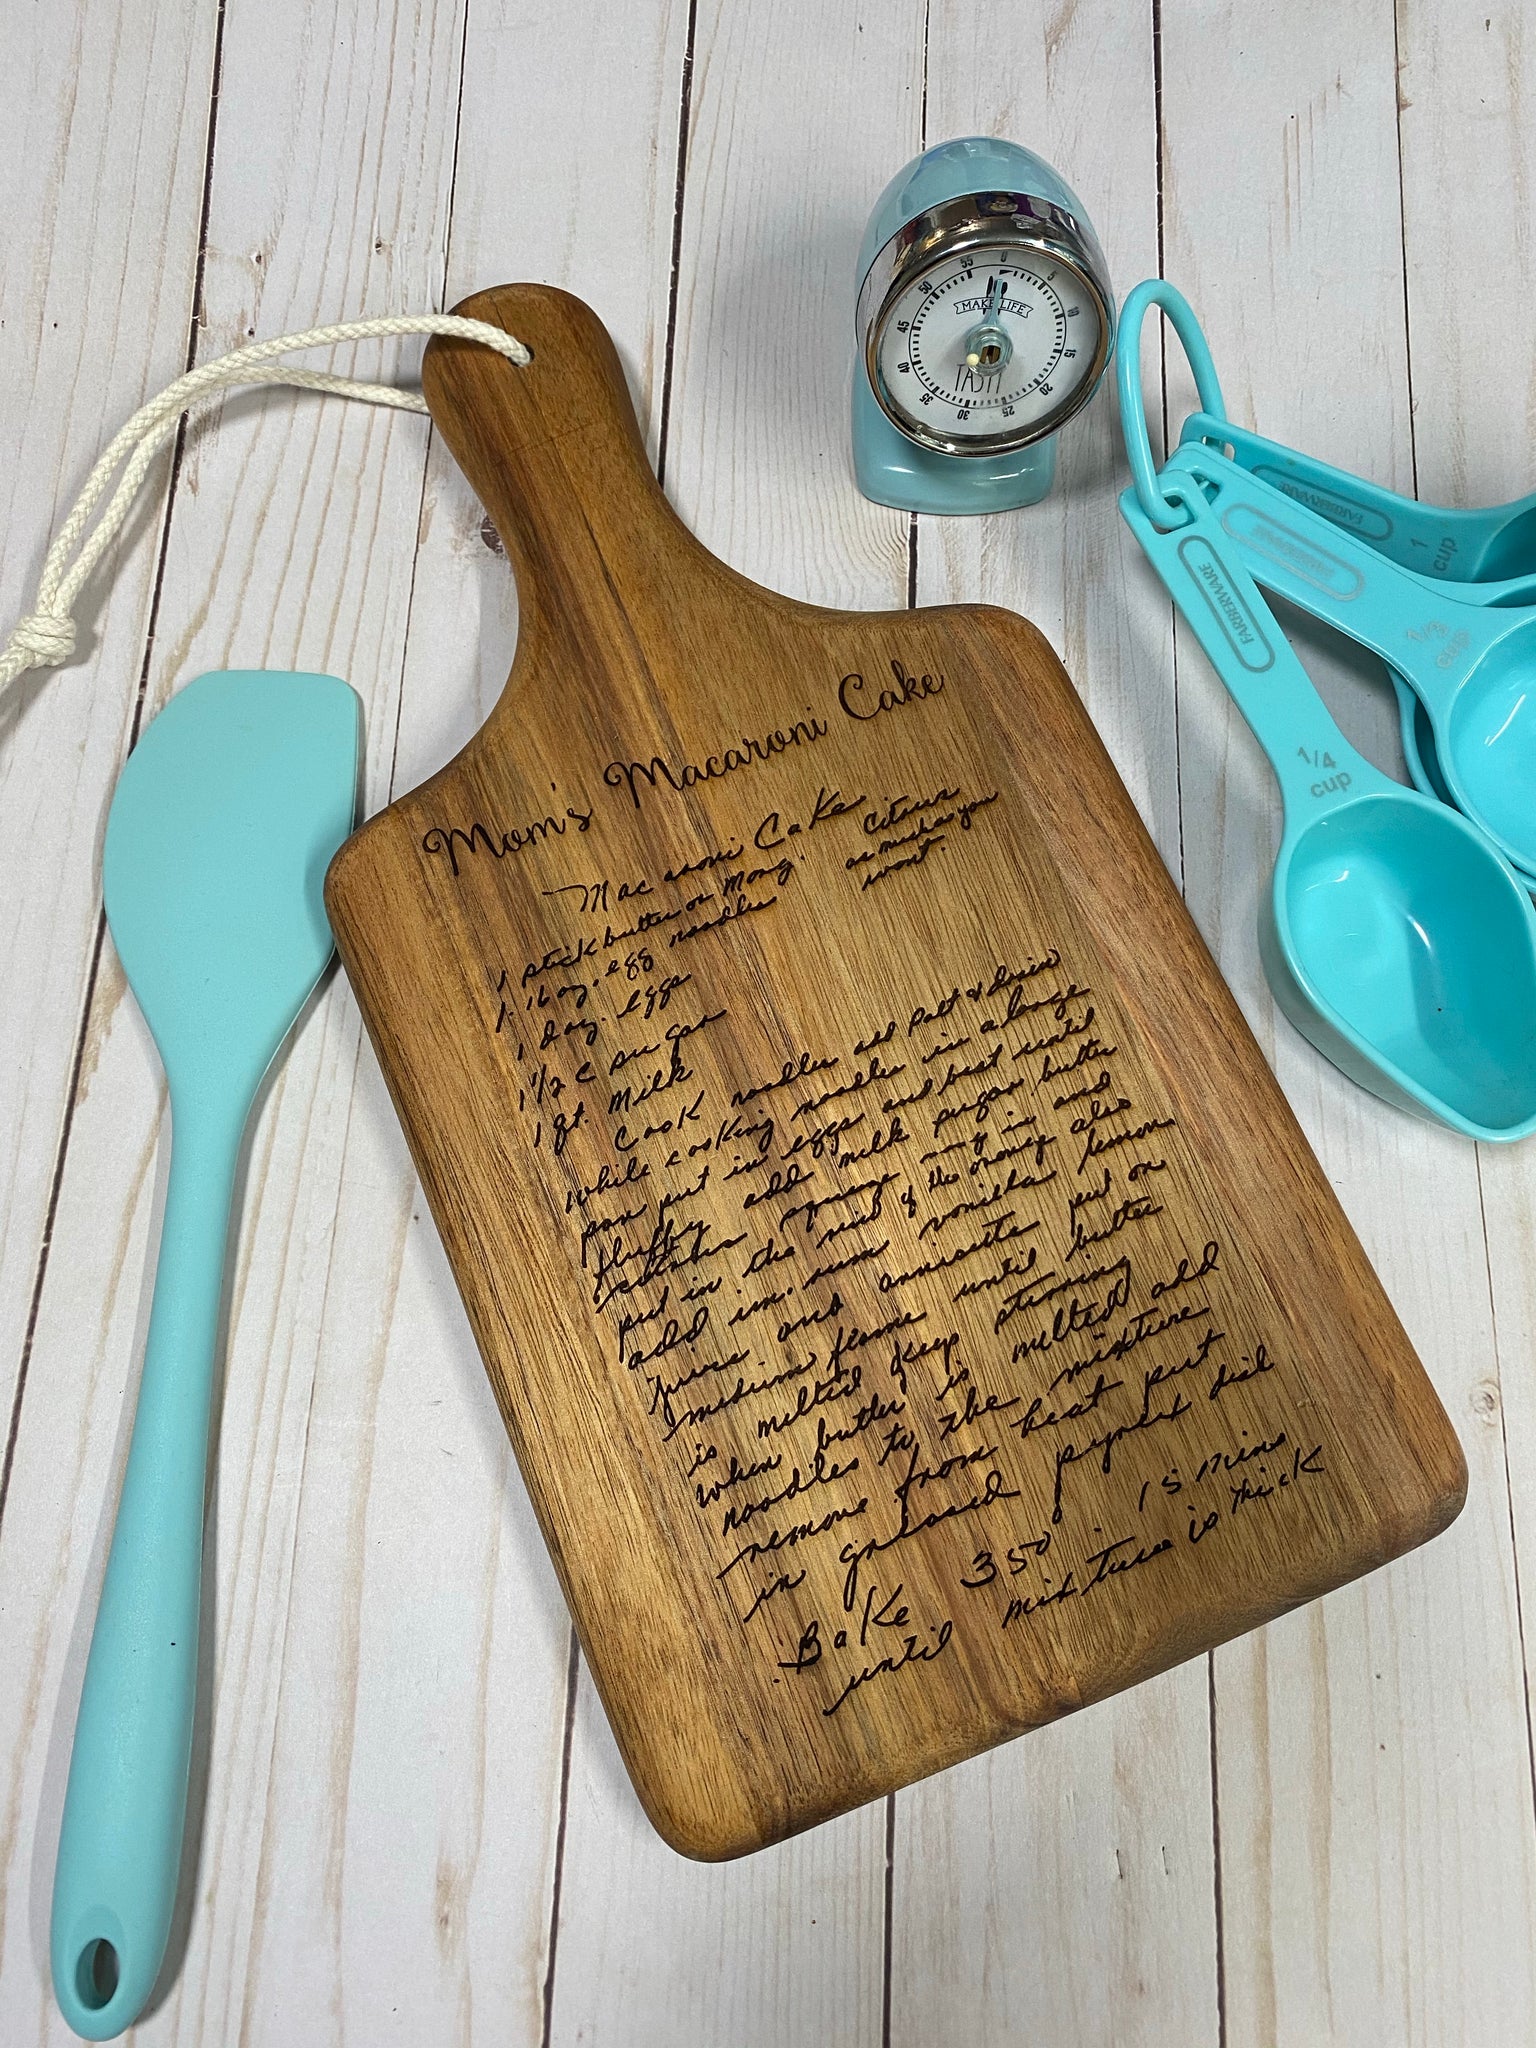 Mom's Macaroni Cake
Macaroni Cake
1 stick butter or marg.
citrus
as much as you
want.
1. 16 oz. egg noodles
1 doz. eggs
1 1/2 c sugar
1 qt. Milk
Cook noodles add salt & drain
while cooking noodles in a large
pan put in eggs and beat until
fluffy add milk sugar butter
citron squeeze orang in and
put in the rind of the orange also
add im. rum vanilla lemon
juice and annisette put on
medium flame until butter
is melted keep stirring
when butter is melted add
noodles to the mixture
remove from heat put
in greased pyrex dish
Bake 350° 15 mins
until mixture is thick
0
5
10
15
20
25
30
35
40
45
50
55
MAKE LIFE
TASTY
FARBERWARE
1
cup
FARBERWARE
cup
FARBERWARE
1/4
cup